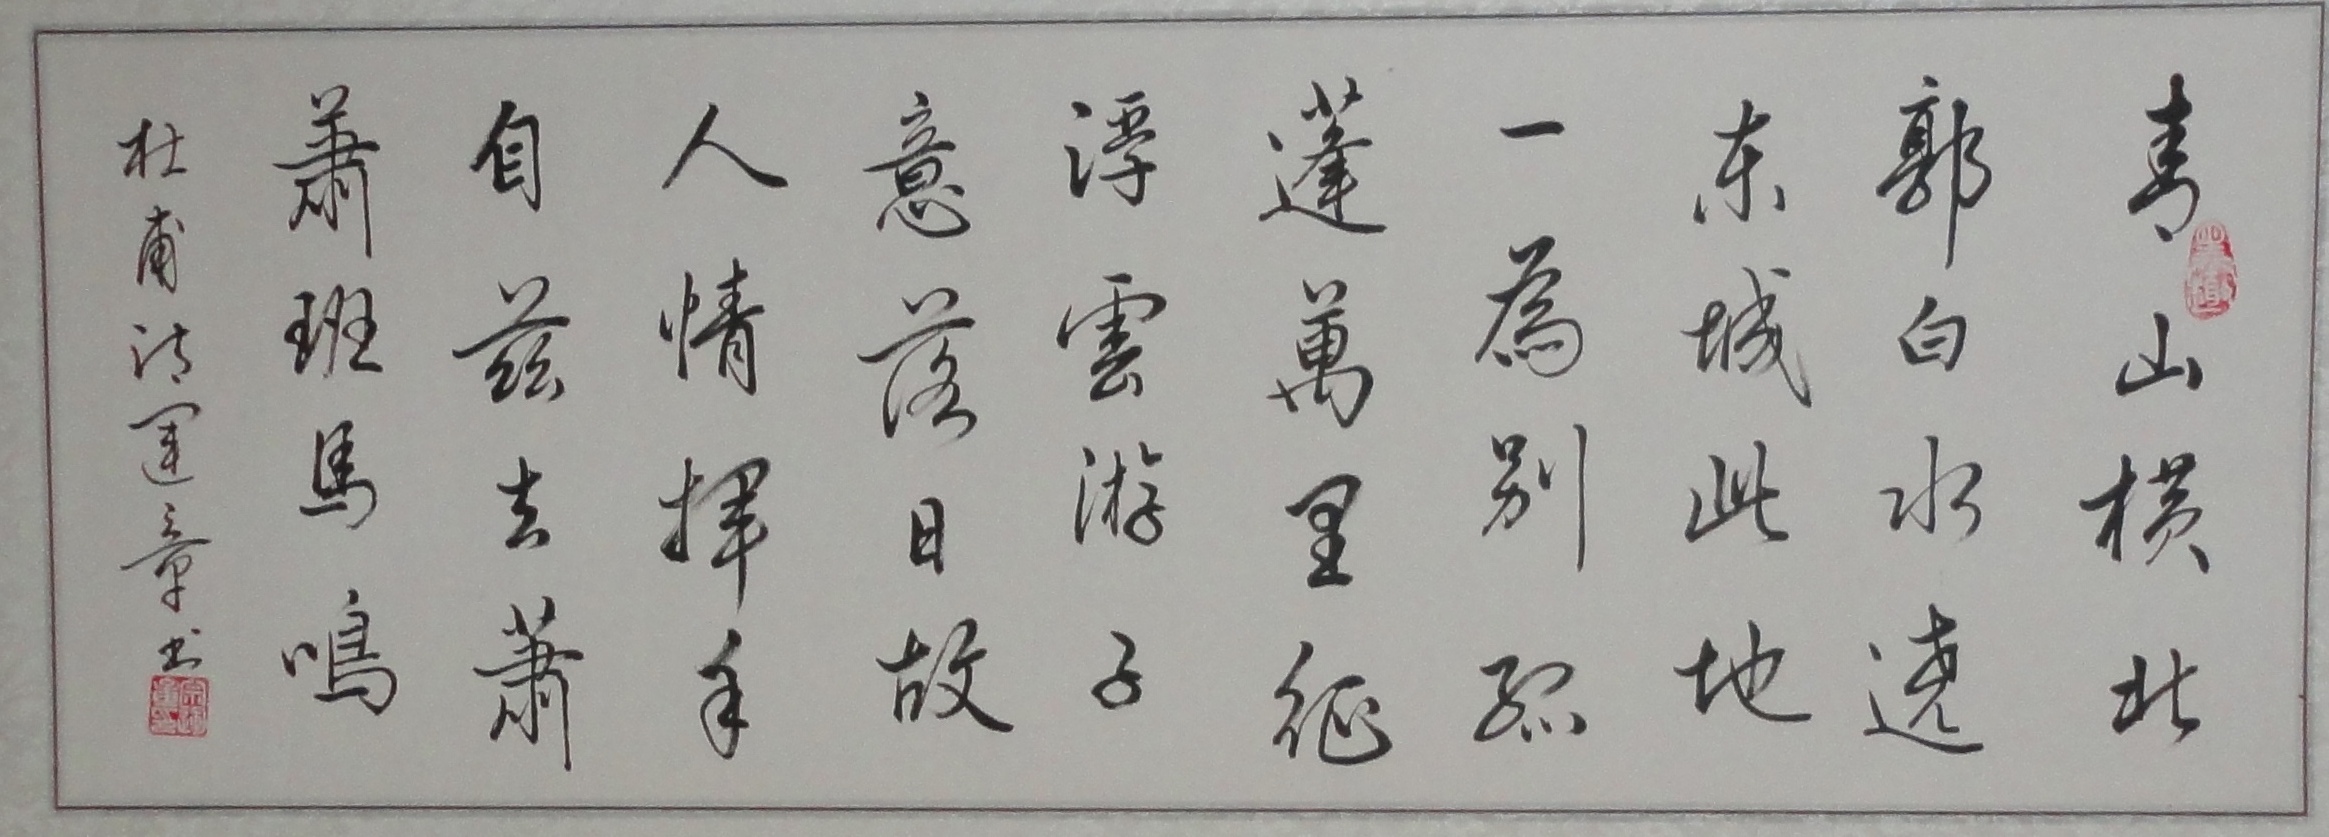 青山橫北
郭白水遶
東城此地
一為別孤
蓬萬里征
浮雲游子
意落日故
人情揮手
自茲去蕭
蕭班馬鳴
杜甫詩運章书